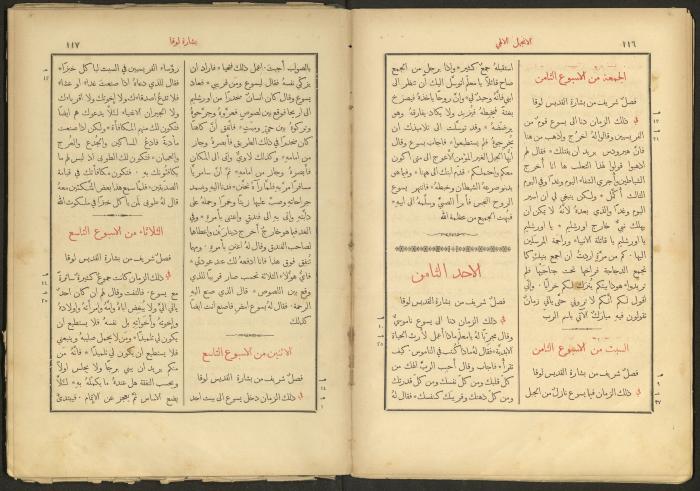 ١١٦
الانجيل الالهي
الجمعة من الاسبوع الثامن
فصل شريف من بشارة القديس لوقا
في ذلك الزمان دنا الى يسوع قوم من
الفريسيين وقالوا له اخرج واذهب من هنا
فان هيرودس يريد ان يقتلك * فقال لهم
اذهبوا قولوا لهذا الثعلب ها انا أُخرج
الشياطين وأُجري الشفاء اليوم وغدا وفي اليوم
الثالث أُكمَّل * ولكن ينبغي لي ان اسير
اليوم وغدا والذي بعده لانه لا يمكن ان
يهلك نبيٌّ خارج اورشليم * يا اورشليم
يا اورشليم يا قاتلة الانبياء وراجمة المرسلين
اليها * كم من مرة اردتُ ان اجمع بنيك كما
تجمع الدجاجة فراخها تحت جناحيها فلم
تريدوا * هوذا بيتكم يُترك لكم خرابًا * واني
اقول لكم انكم لا ترونني حتى يأتي زمان
تقولون فيه مبارك الآتي باسم الرب
السبت من الاسبوع الثامن
فصل شريف من بشارة القديس لوقا
في ذلك الزمان فيما يسوع نازل من الجبل
استقبله جمع كثير * واذا برجل من الجمع
صاح قائلا يا معلم اتوسل اليك ان تنظر الى
ابني فانه وحيد لي * وان روحا يأخذه فيصرخ
بغتة فيخبطه فيزبد ولا يكاد يفارقه وهو
يرضضه * وقد توسلت الى تلاميذك ان
يخرجوه فلم يستطيعوا * فاجاب يسوع وقال
ايها الجيل الغير المؤمن الاعوج الى متى اكون
معكم واحتملكم * قدّم ابنك الى هنا * وفيما هو
يدنو صرعه الشيطان وخبطه * فانتهر يسوع
الروح النجس فأبرأ الصبي وسلمه الى ابيه *
فبهت الجميع من عظمة الله
الاحد الثامن
فصل شريف من بشارة القديس لوقا
في ذلك الزمان دنا الى يسوع ناموسيٌّ
وقال مجربا له يا معلم ماذا اعمل لأرث الحياة
الابدية * فقال له ماذا كُتب في الناموس * كيف
تقرأ * فاجاب وقال احبب الرب الهك من
كل قلبك ومن كل نفسك ومن كل قدرتك
ومن كل ذهنك وقريبك كنفسك * فقال له
بشارة لوقا
١١٧
بالصواب أجبت * اعمل ذلك فتحيا * فاراد ان
يزكي نفسه فقال ليسوع ومن قريبي * فعاد
يسوع وقال كان انسان منحدرا من اورشليم
الى اريحا فوقع بين لصوص فعرّوه وجرّحوه
وتركوه بين حي وميت * فاتفق أن كاهنا
كان منحدرا في ذلك الطريق فأبصره وجاز
من امامه * وكذلك لاوي واتى الى المكان
فأبصره وجاز من امامه * ثم ان سامريا
مسافرا مر به فلما رآه تحنن * فدنا اليه وضمد
جراحاته وصب عليها زيتا وخمرا وحمله على
دابته واتى به الى فندق واعتنى بأمره * وفي
الغد فيما هو خارج أخرج دينارين وأعطاهما
لصاحب الفندق وقال له اعتنِ بأمره * ومهما
تنفق فوق هذا فانا ادفعه لك عند عودتي *
فأي هؤلاء الثلاثة تحسب صار قريبا للذي
وقع بين اللصوص * قال الذي صنع اليه
الرحمة * فقال له يسوع امضِ فاصنع انت ايضا
كذلك
الاثنين من الاسبوع التاسع
فصل شريف من بشارة القديس لوقا
في ذلك الزمان دخل يسوع الى بيت احد
رؤساء الفريسيين في السبت ليأكل خبزا *
فقال للذي دعاه اذا صنعت غداء او عشاء
فلا تدعُ اصدقاءك ولا إخوتك ولا اقرباءك
ولا الجيران الاغنياء لئلا يدعوك هم ايضا
فتكون لك منهم المكافأة * ولكن اذا صنعت
مأدبة فادعُ المساكين والجُدع والعُرج
والعميان * فتكون لك الطوبى اذ ليس لهم ما
يكافئونك به * فتكون مكافأتك في قيامة
الصديقين * فلما سمع هذا بعض المتكئين معه
قال له طوبى لمن يأكل خبزا في ملكوت الله
الثلاثاء من الاسبوع التاسع
فصل شريف من بشارة القديس لوقا
في ذلك الزمان كانت جموع كثيرة سائرة
مع يسوع * فالتفت وقال لهم ان كان احد
يأتي اليّ ولا يبغض اباه وأمه وامرأته واولاده
واخوته واخواته بل نفسه فلا يستطيع ان
يكون لي تلميذا * ومن لا يحمل صليبه ويتبعني
فلا يستطيع ان يكون لي تلميذا * فانه مَن
منكم يريد ان يبني برجا ولا يجلس اولا
ويحسب النفقة هل عنده ما يكمله به * لئلا
يضع الاساس ثم يعجز عن الاتمام * فيبتدئ